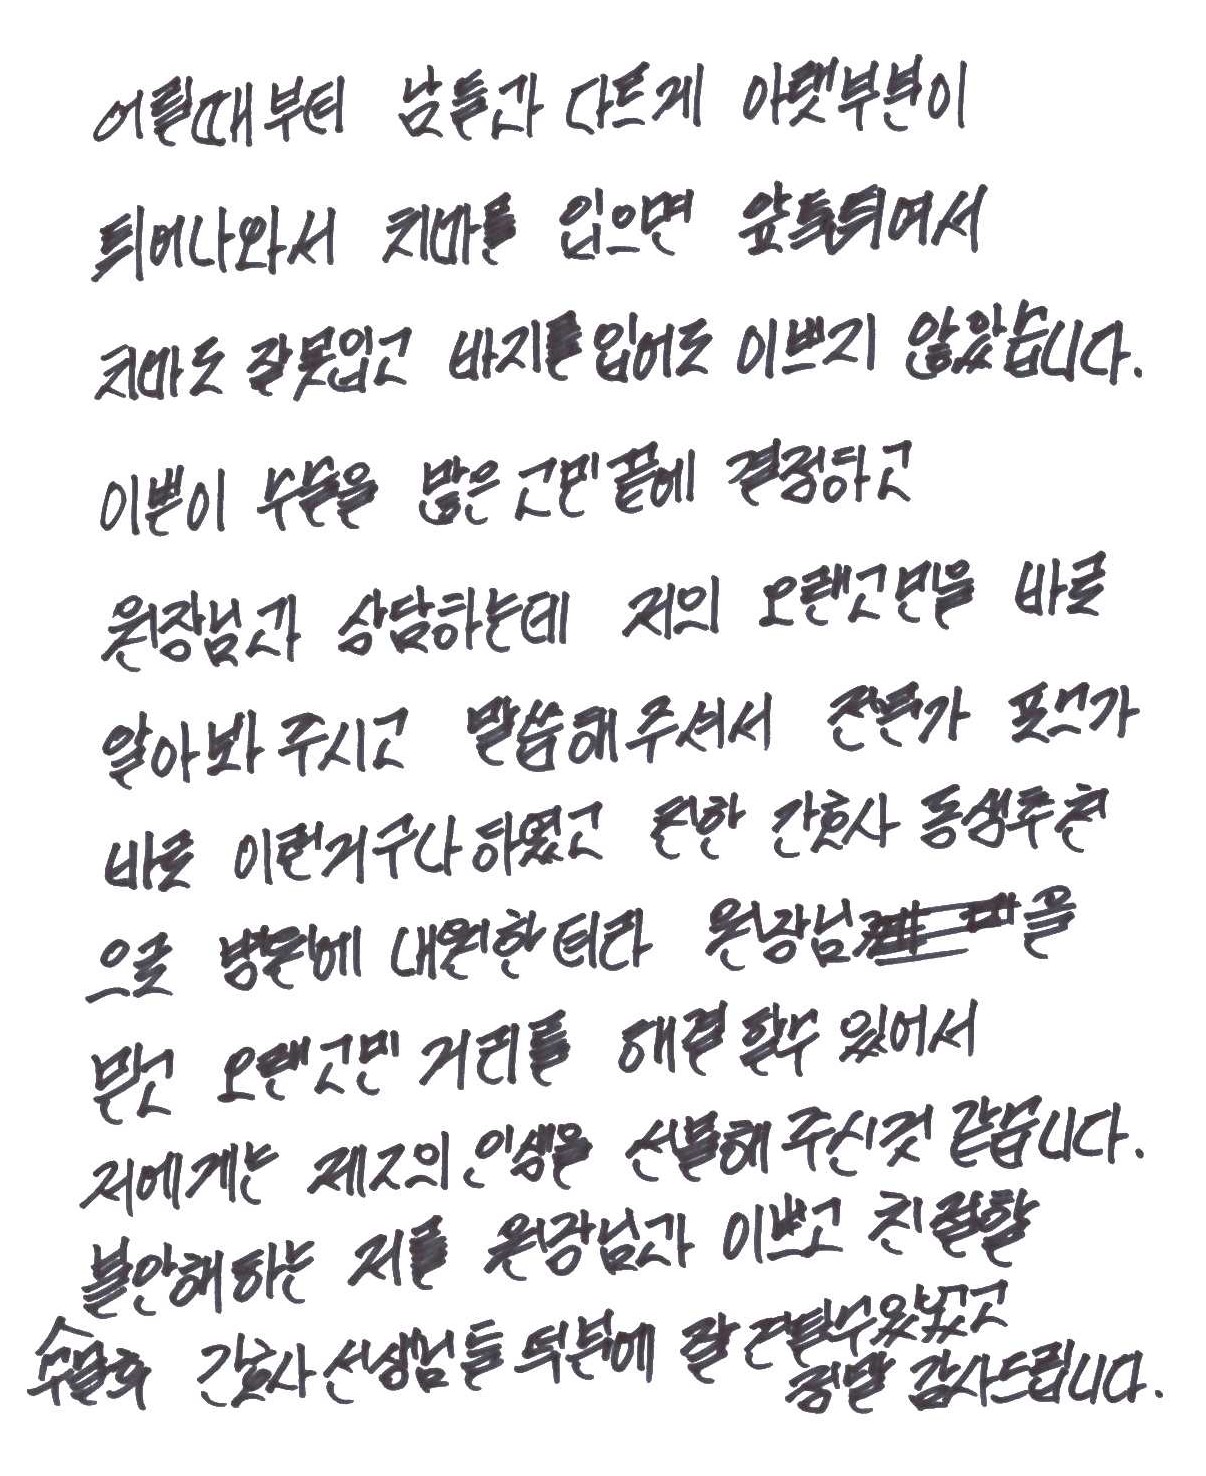 어릴때부터 남들과 다르게 아랫부분이
튀어나와서 치마를 입으면 앞툭튀여서
치마도 잘못입고 바지를 입어도 이쁘지 않았습니다.
이쁜이 수술을 많은 고민끝에 결정하고
원장님과 상담하는데 저의 오랜고민을 바로
알아봐 주시고 말씀해 주셔서 전문가 포스가
바로 이런거구나 하였고 친한 간호사 동생추천
으로 병원에 내원한 터라 원장님을
믿고 오랜고민 거리를 해결 할수 있어서
저에게는 제2의 인생을 선물해 주신것 같습니다.
불안해하는 저를 원장님과 이쁘고 친절할
수술후 간호사 선생님들 덕분에 잘 견딜수있었고
정말 감사드립니다.